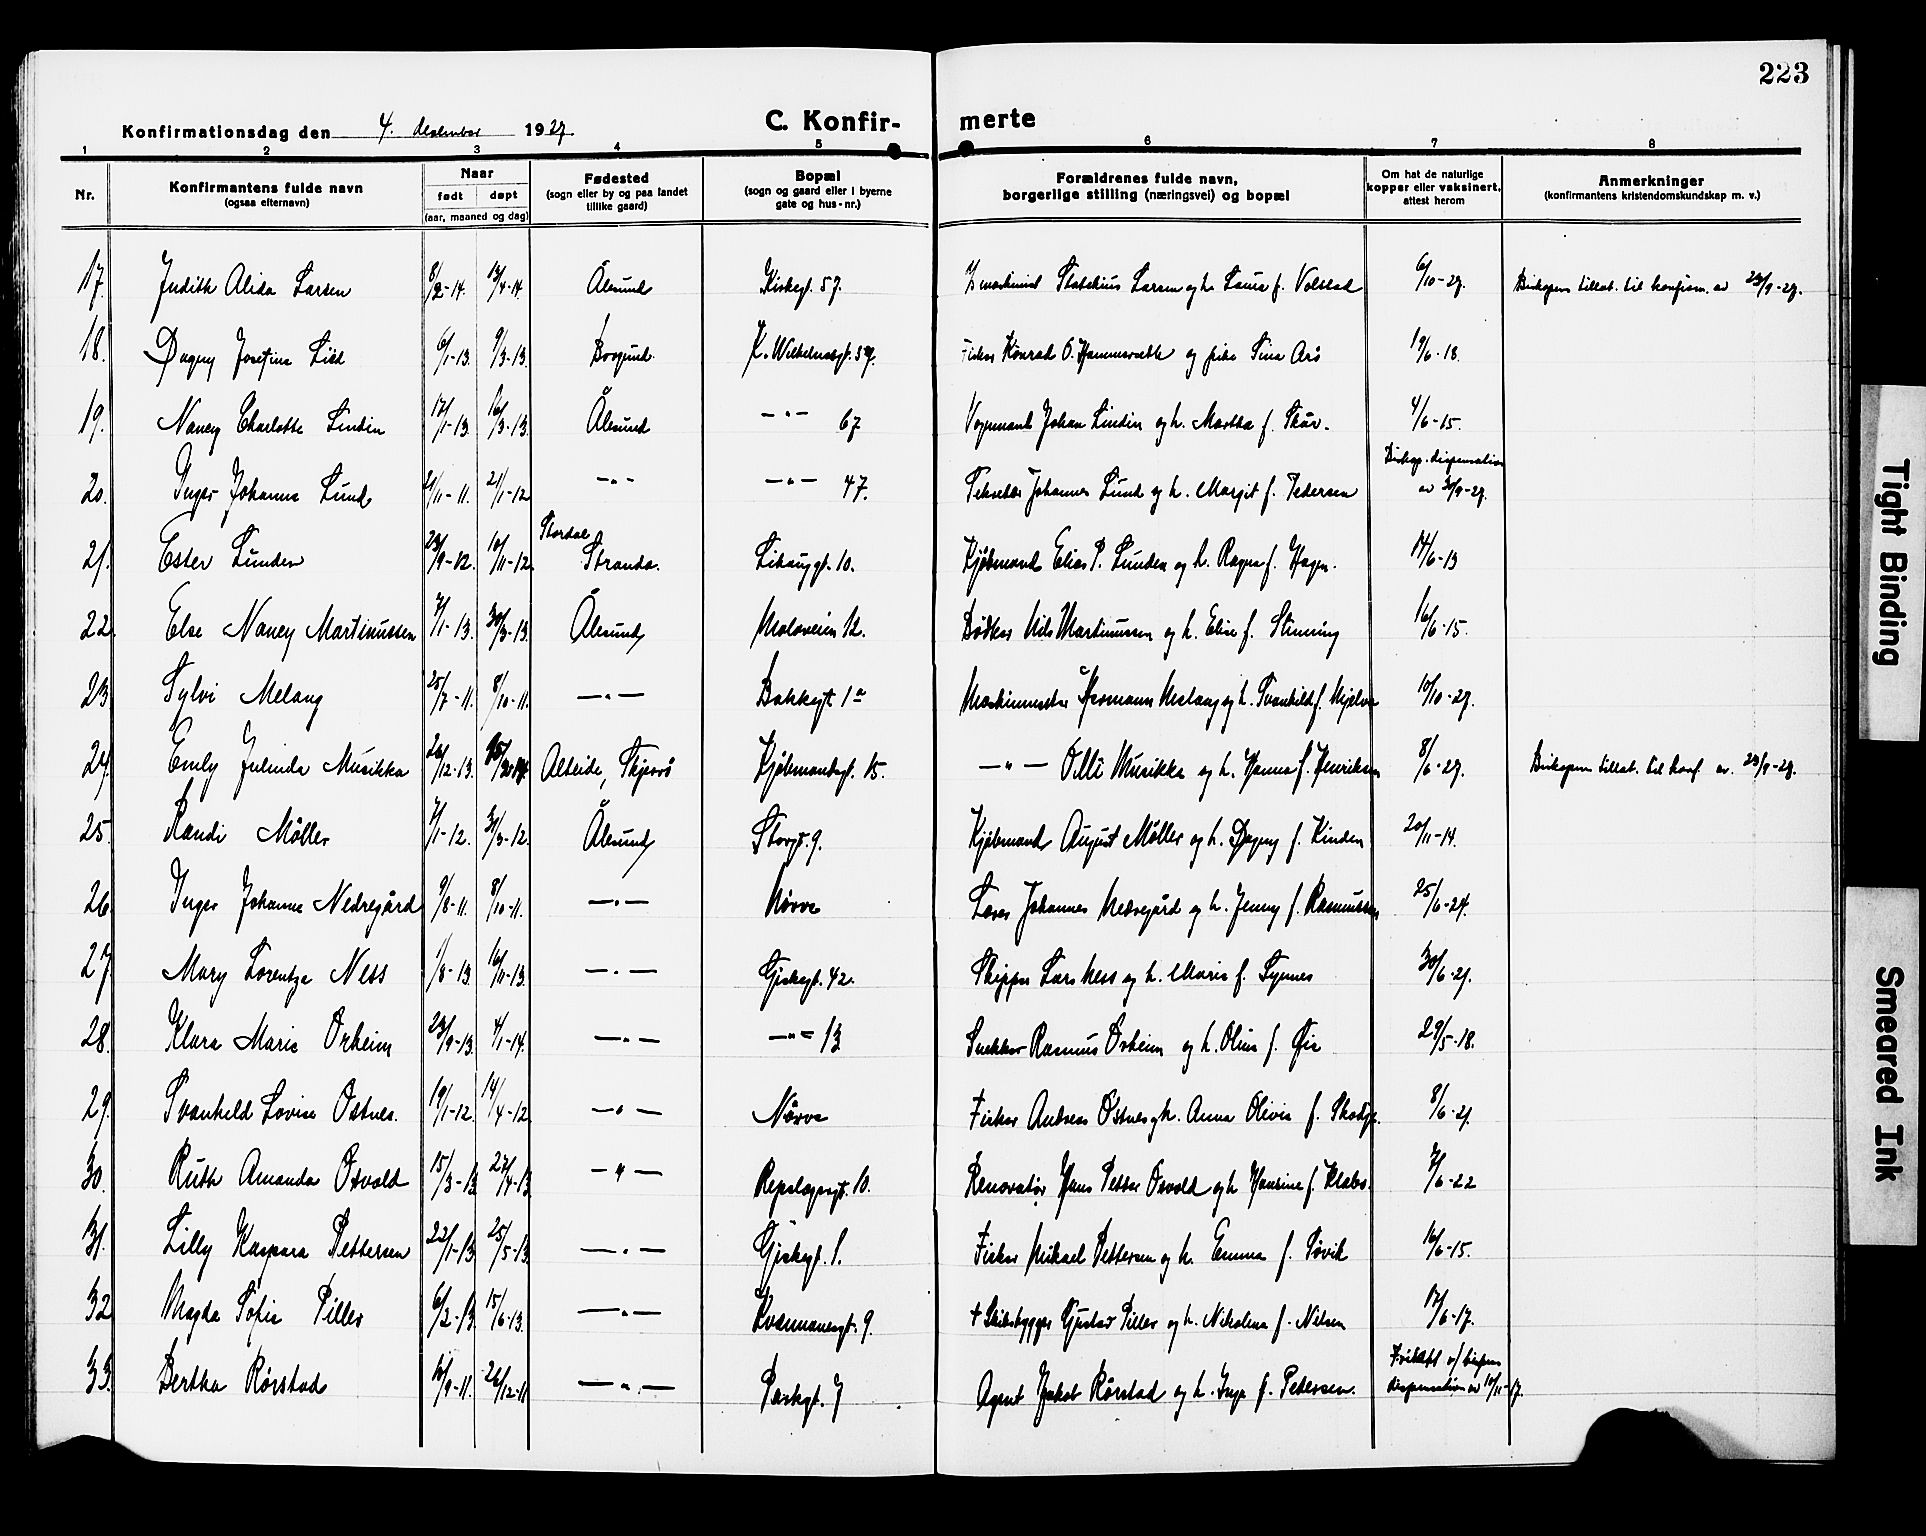 223
Konfirmationsdag den 4. desember 1927.
C. Konfirmerte
1 2 3 4 5 6 7 8
Nr.
Konfirmantens fulde navn
(ogsaa efternavn)
Naar
født døpt
(aar, maaned og dag)
Fødested
(sogn eller by og paa landet
tillike gaard)
Bopæl
(sogn og gaard eller i byerne
gate og hus-nr.)
Forældrenes fulde navn,
borgerlige stilling (næringsvei) og bopæl
Om hat de naturlige
kopper eller vaksinert,
attest herom
Anmerkninger
(konfirmantens kristendomskundskap m. v.)
17. Judith Alida Larsen 8/2-14. 13/4-14. Ålesund Kirkegt. 57. Larsen og h. Laura f. Volstad 6/10-27. Biskopens tillat. til konfirm. av 23/9-27.
18. Dagny Josefine Lied 6/1-13. 9/3-13. Borgund K. Wilhelmsgt. 39. Fisker Konrad O. Hammersæth og pike Sina Arö 19/6-18.
19. Nancy Charlotte Lindin 17/1-13. 16/3-13. Ålesund —"— 67 Vognmand Johan Lindin og h. Martha f. Skår. 4/6-15.
20. Inger Johanne Lund 21/11-11. 21/1-12 —"— —"— 47. Johannes Lund og h. Margit f. Pedersen Biskop. dispensation
av 30/9-27.
21. Ester Lunden 23/9-12. 10/11-12. Stordal
Stranda. 10. Kjøbmand Elias P. Lunden og h. Ragna f. 14/6-13
22. Else Nancy Martinussen 7/1-13. 30/3-13. Ålesund Moloveien 12. Bødker Nils Martinussen og h. Elise f. Slinning 16/6-15.
23 Sylvi Melang 25/7-11. 8/10-11. —"— Bakkegt. 1a Maskinmester Hermann Melang og h. Svanhild f. Mjelve 10/10-27.
24. Emly Julinda Musikka 26/12-13. Alteide, Skjervö Kjøbmandsgt. 15. —"— Olli Musikka og h. Hanna f. Henriksen 8/6-27. Biskopens tillat. til konf. av 23/9-27.
25. Randi Möller 7/1-12. 31/3-12. Ålesund Storgt. 9. Kjøbmand August Møller og h. Dagny f. Kinden 20/11-14.
26. Inger Johanne Nedregård 9/8-11. 8/10-11. —"— Nörve Johannes Nedregård og h. Jenny f. Rasmussen 25/6-24.
27. Mary Lorentze Ness 1/8-13. 16/11-13. —"— Giskegt. 42. Skipper Lars Ness og h. Marie f. Synnes 30/6-21.
28. Klara Marie Orheim 23/9-13. 4/1-14. —"— —"— 13 Snekker Rasmus Orheim og h. Oline f. Øie 29/5-18.
29. Svanhild Lovise Ostnes. 19/1-12. 14/4-12. —"— Nörve Fisker Andreas Östnes og h. Anna Olivia f. Skodje. 8/6-21.
30. Ruth Amanda Osvold 15/3-13 27/4-13 —"— Repslagergt. 10. Renovatør Hans Petter Osvold og h Hansine f. Klebo. 7/6-22
31. Lilly Kaspara Pettersen 22/1-13 25/5-13 —"— Giskegt. 1. Fisker Mikael Pettersen og h. Emma f. Søvik 16/6-15.
32 Magda Sofie Piller 6/2-13 15/6-13. —"— 9. + Skibsbygger Gustav Piller og h. Nikoline f. Nilsen 17/6-17.
33. Bertha Rørstad 10/9-11. 26/12-11 —"— Parkgt. 7 Agent Jakob Rørstad og h. Inga f. Pedersen. Fritatt v/ bispens
dispensation av 10/11-17.
Tight Binding
Smeared Ink